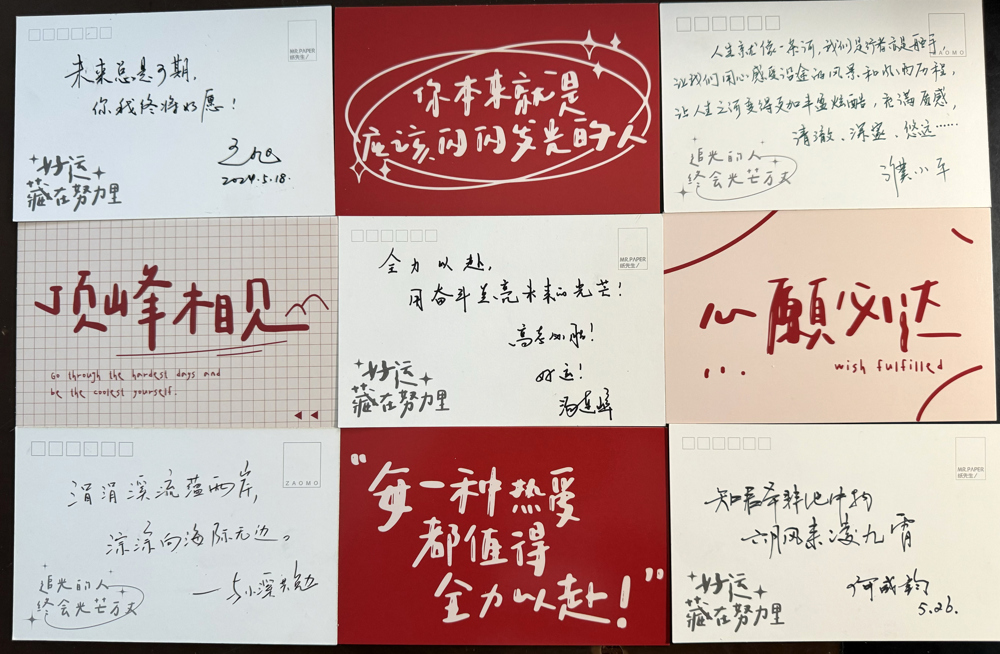 未来总是可期，
你我终将如愿！
2024.5.18.
好运
藏在努力里
MR.PAPER
纸先生/
你本来就是
应该闪闪发光的人
人生就像一条河，我们是行者亦是舵手，
让我们用心感受沿途的风景和风雨历程，
让人生之河变得更加丰盈炫酷，充满质感，
清澈、深邃、悠远……
小车
追光的人
终会光芒万丈
ZAOMO
顶峰相见
Go through the hardest days and
be the coolest yourself.
全力以赴，
用奋斗点亮未来的光芒！
高考加油！
好运！
好运
藏在努力里
MR.PAPER
纸先生/
心愿必达
wish fulfilled
涓涓溪流蕴两岸，
淙淙向海际无边。
——与小溪共勉
追光的人
终会光芒万丈
ZAOMO
“每一种热爱
都值得
全力以赴！”
知君本非池中物
六月风来凌九霄
何威
5.26.
好运
藏在努力里
MR.PAPER
纸先生/